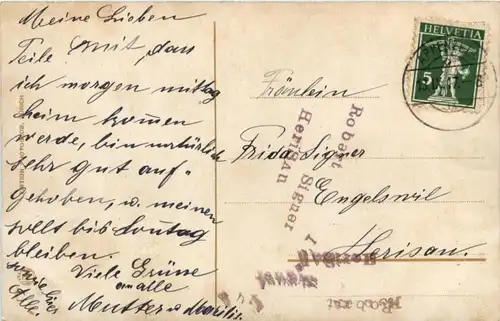 Meine Lieben
Teile mit, dass
ich morgen mittag
heim kommen
werde, bin natürlich
sehr gut auf-
gehoben, u. meinen
sollt bis Sontag
bleiben.
Viele Grüsse
an alle
Mutter u.
HELVETIA
5
Fräulein
Frida Signer
Engelswil
Herisau.
Robert Signer
Herisau
Herisau
Robert